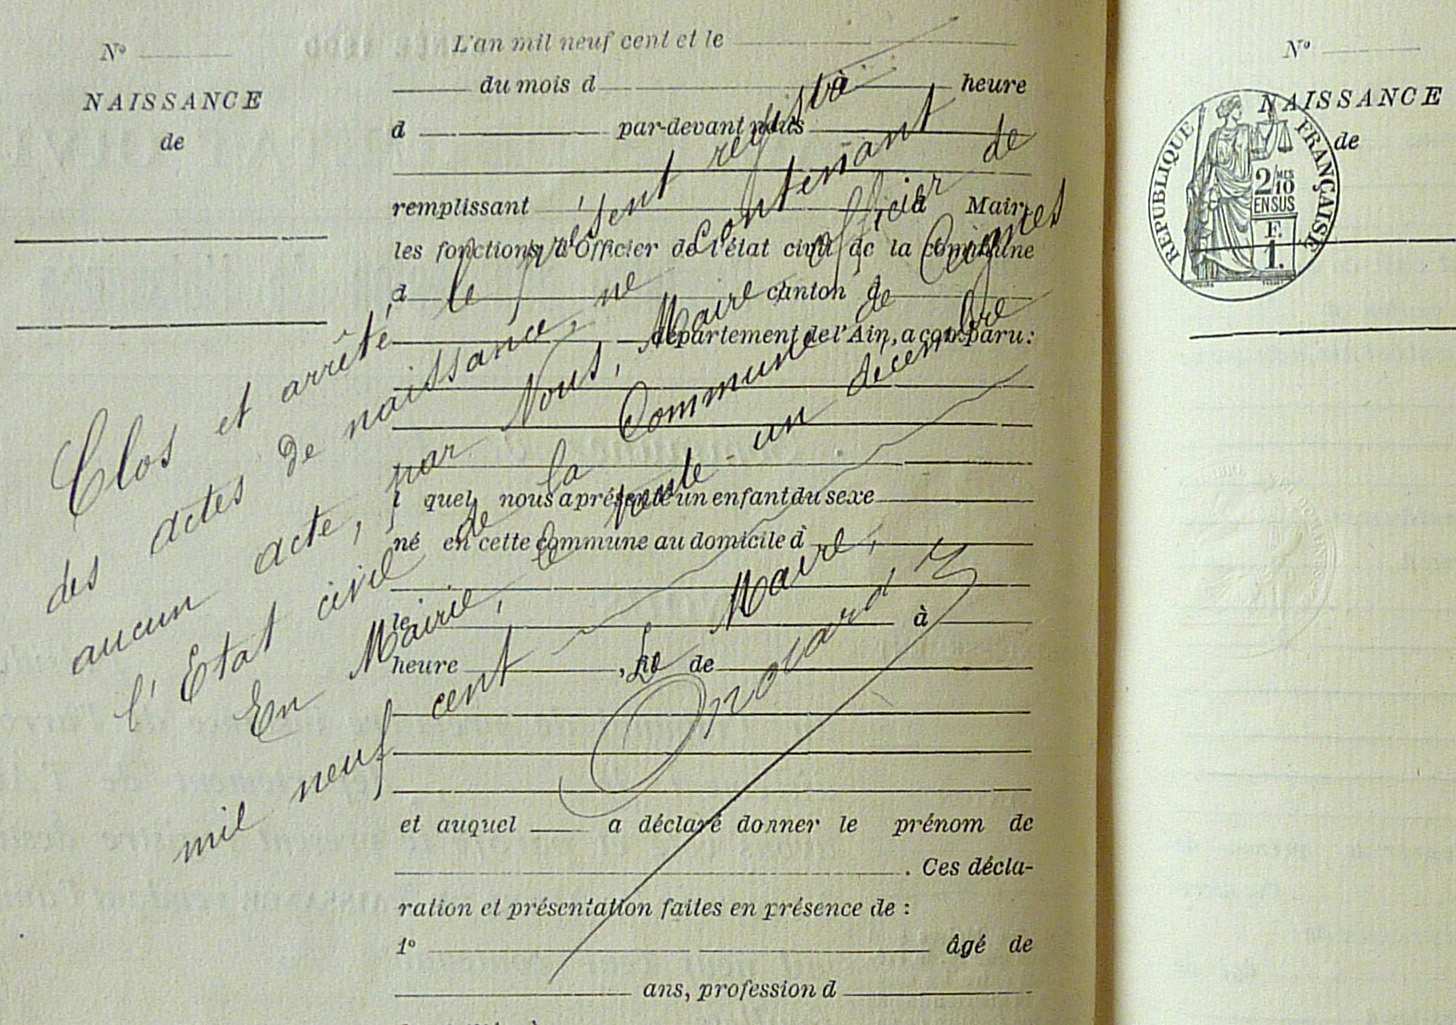 N°
NAISSANCE
de
L'an mil neuf cent et le
du mois d à heure
d par-devant nous
remplissant à Mair
les fonctions d'Officier de l'état civil de la commune
d canton d
département de l'Ain, a comparu:
l quel nous a présenté un enfant du sexe
né en cette commune au domicile d
le à
heure , de
et auquel a déclaré donner le prénom de
. Ces décla-
ration et présentation faites en présence de :
1° âgé de
ans, profession d
Clos et arrêté, le présent registre
des actes de naissance, ne contenant
aucun acte, par Nous, Maire, officier de
l'Etat civil de la Commune de
En Mairie, le trente un décembre
mil neuf cent
Le Maire,
N°
NAISSANCE
de
REPUBLIQUE FRANÇAISE
2/10 MES
EN SUS
F.
1.